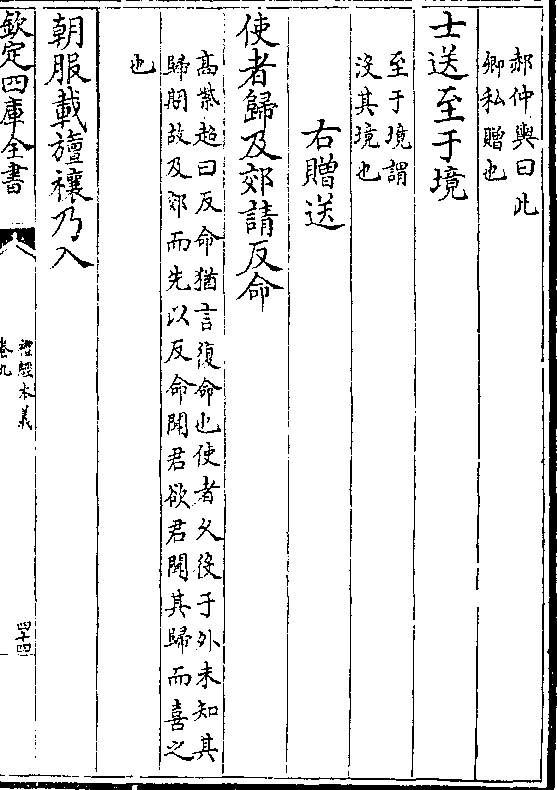 郝仲輿曰此
卿私贈也
士送至于境
至于境謂
沒其境也
右贈送
使者歸及郊請反命
高紫超曰反命猶言復命也使者久役于外未知其
歸期故及郊而先以反命聞君欲君聞其歸而喜之
也
朝服載旜禳乃入
欽定四庫全書
禮經本義
卷九
四十四